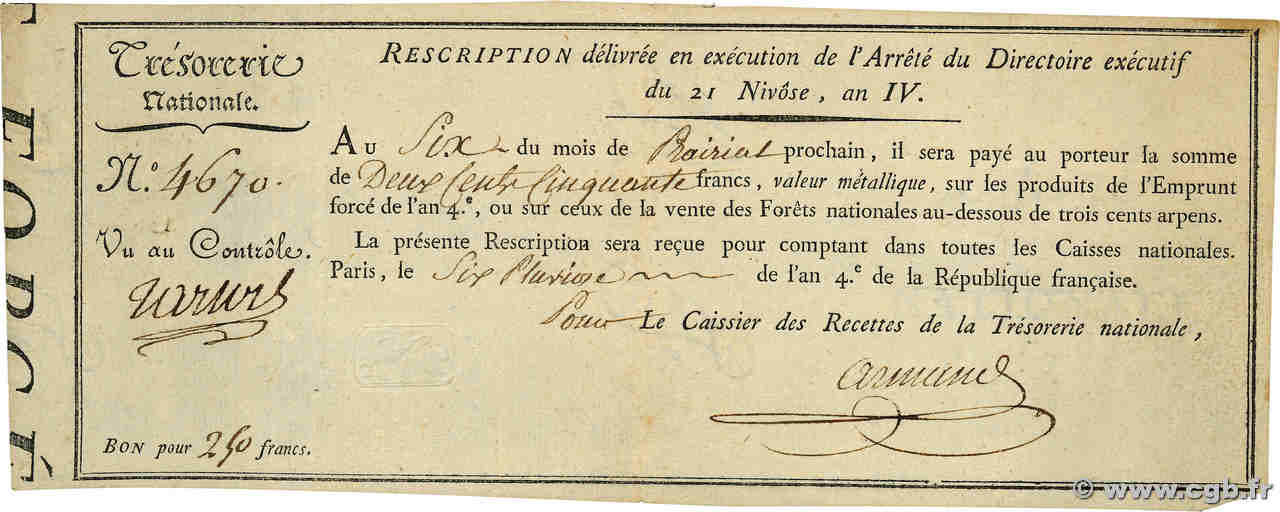 FORCÉ
Trésorerie
Nationale.
N.º 4670.
Vu au Contrôle.
BON pour 250 francs.
RESCRIPTION délivrée en exécution de l'Arrêté du Directoire exécutif
du 21 Nivôse, an IV.
AU Six du mois de Prairial prochain, il sera payé au porteur la somme
de Deux Cents Cinquante francs, valeur métallique, sur les produits de l'Emprunt
forcé de l'an 4.e, ou sur ceux de la vente des Forêts nationales au-dessous de trois cents arpens.
La présente Rescription sera reçue pour comptant dans toutes les Caisses nationales.
Paris, le Six Pluviose de l'an 4.e de la République française.
Pour Le Caissier des Recettes de la Trésorerie nationale,
Armand
© www.cgb.fr